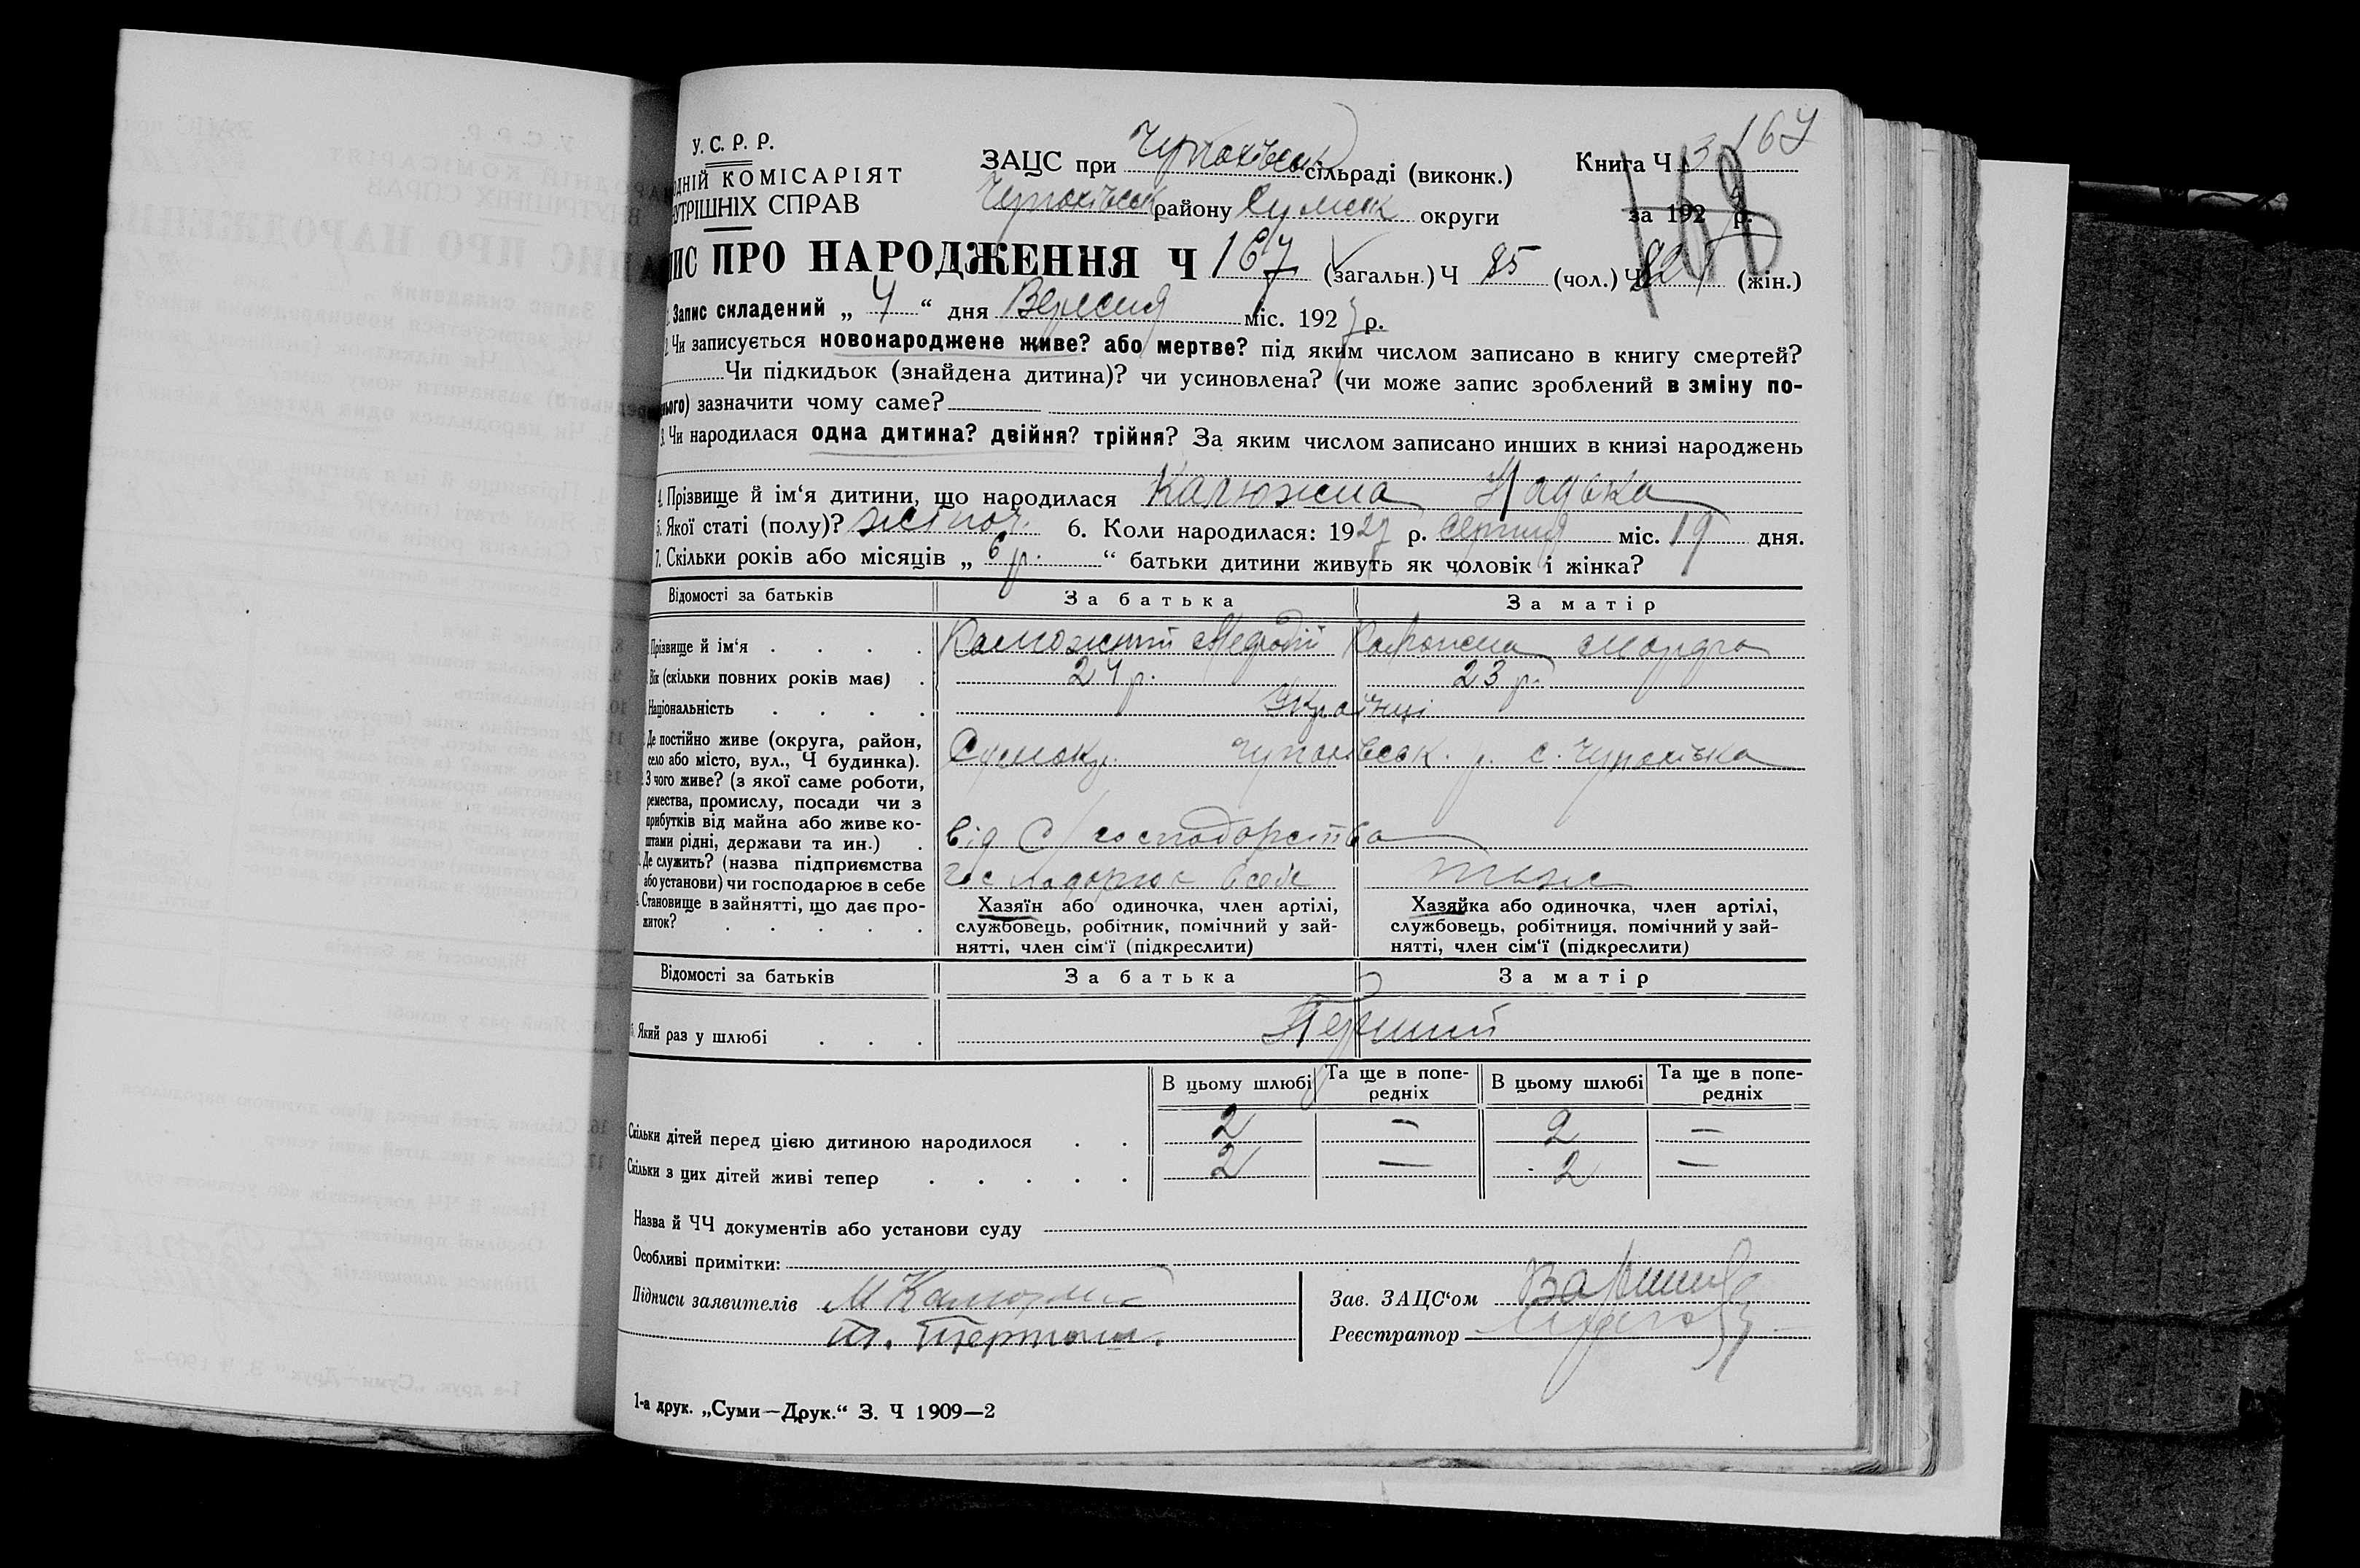 167
У. С. Р. Р.
ОДНІЙ КОМІСАРІЯТ
УТРІШНІХ СПРАВ
ЗАЦС при Чупахівськ сільраді (виконк.)
Чупахівськ району Сумськ округи
Книга Ч 3
за 1927 р.
168
ПИС ПРО НАРОДЖЕННЯ Ч 167 (загальн.) Ч 85 (чол.) Ч 82 (жін.)
1. Запис складений „ 4 “ дня Вересня міс. 1927 р.
2. Чи записується новонароджене живе? або мертве? під яким числом записано в книгу смертей?
Чи підкидьок (знайдена дитина)? чи усиновлена? (чи може запис зроблений в зміну по-
нього) зазначити чому саме?
3. Чи народилася одна дитина? двійня? трійня? За яким числом записано инших в книзі народжень
4. Прізвище й ім‘я дитини, що народилася Калюжна Надька
5. Якої статі (полу)? жіноч. 6. Коли народилася: 1927 р. Серпня міс. 19 дня.
7. Скільки років або місяців „ 6 р. “ батьки дитини живуть як чоловік і жінка?
Відомості за батьків За батька За матір
Прізвище й ім‘я Калюжний Мефодій Калюжна
Вік (скільки повних років має) 24 р. 23 р.
Національність Українці
Де постійно живе (округа, район,
село або місто, вул., Ч будинка). Сумськ. Чупахівськ. р. с. Чупахівка
З чого живе? (з якої саме роботи,
ремества, промислу, посади чи з
прибутків від майна або живе ко-
штами рідні, держави та ин.) від С/господарства
Де служить? (назва підприємства
або установи) чи господарює в себе Господарює в себе теж
Становище в зайнятті, що дає про-
житок?
Хазяїн або одиночка, член артілі,
службовець, робітник, помічний у зай-
нятті, член сім‘ї (підкреслити)
Хазяйка або одиночка, член артілі,
службовець, робітниця, помічний у зай-
нятті, член сім‘ї (підкреслити)
Відомості за батьків За батька За матір
Який раз у шлюбі Перший
В цьому шлюбі Та ще в попе-
редніх В цьому шлюбі Та ще в попе-
редніх
Скільки дітей перед цією дитиною народилося 2 — 2 —
Скільки з цих дітей живі тепер 2 — 2 —
Назва й ЧЧ документів або установи суду
Особливі примітки:
Підписи заявителів М Калюжний
Зав. ЗАЦС‘ом
Реєстратор
1-а друк. „Суми—Друк.“ З. Ч 1909—2